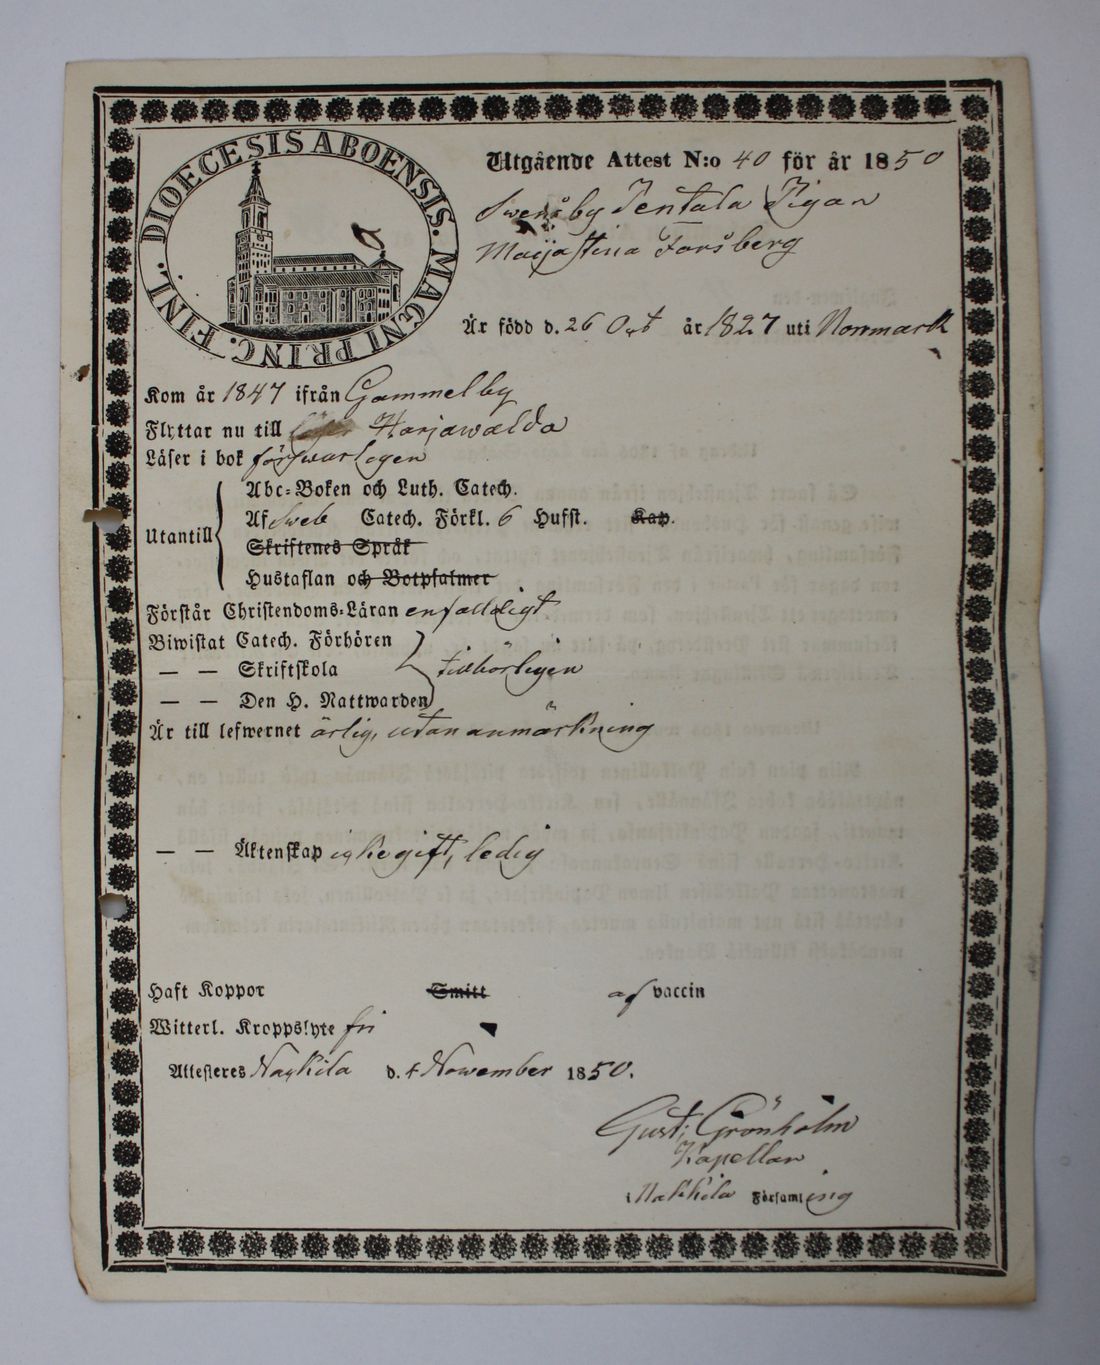 DIOECESIS ABOENSIS. MAGNI PRINC. FINL.
Utgående Attest N:o 40 för år 1850
Swensby Tentala Pigan
Maijastina Forsberg
Är född d. 26 Oct år 1827 uti Norrmark
Kom år 1847 ifrån Gammelby
Flyttar nu till Harjawalda
Läser i bok förswarligen
Abc-Boken och Luth. Catech.
Utantill Af Sweb Catech. Förkl. 6 Hufst. Kap.
Skriftenes Språk
Hustaflan och Botpsalmer
Förstår Christendoms-Läran enfalldigt
Biwistat Catech. Förhören
— — Skriftskola tillbörligen
— — Den H. Nattwarden
Är till lefwernet ärlig, utan anmärkning
— — Äktenskap icke gift, ledig
Haft Koppor Smitt af vaccin
Witterl. Kroppslyte fri
Attesteres Nackila d. 4 November 1850.
Gust: Grönholm
Kapellan
i Nakkila Församling